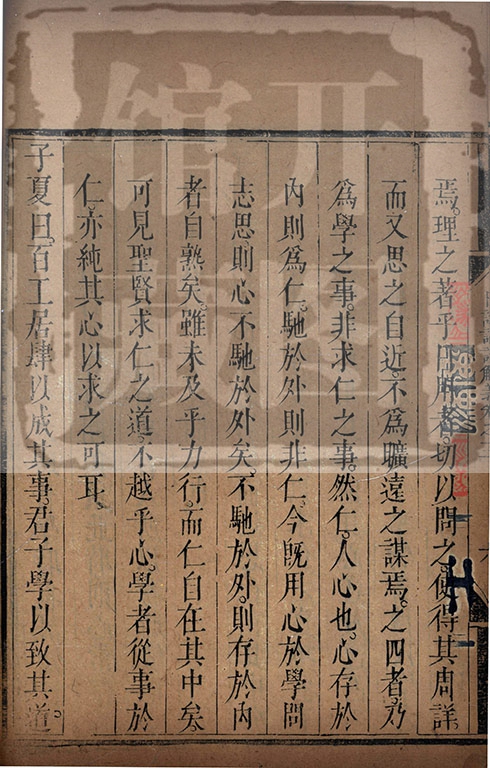 焉理之著乎日用者切以問之使得其周詳
而又思之自近不爲曠遠之謀焉之四者乃
爲學之事非求仁之事然仁人心也心存於
內則爲仁馳於外則非仁今旣用心於學問
志思則心不馳於外矣不馳於外則存於內
者自熟矣雖未及乎力行而仁自在其中矣
可見聖賢求仁之道不越乎心學者從事於
仁亦純其心以求之可耳
子夏曰百工居肆以成其事君子學以致其道